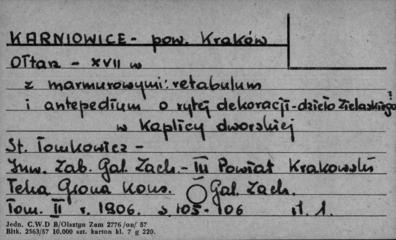 KARNIOWICE - pow. Kraków
Ołtarz - XVII w
z marmurowymi: retabulum
i antepedium o rytej dekoracji - dzieło Zielaskiego?
w kaplicy dworskiej
St. Tomkowicz -
Inw. Zab. Gal. Zach. - III Powiat Krakowski
Teka Grona Kons. Gal. Zach.
Tom. II r. 1906. s. 105-106 il. 1.
Jedn. C.W.D B/Olsztyn Zam 2776/on/57
Bltk. 2563/57 10.000 szt. karton kl. 7 g 220.